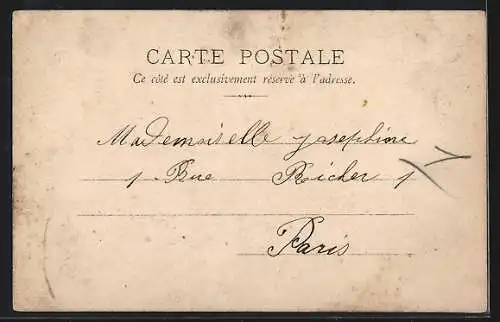 CARTE POSTALE
Ce côté est exclusivement réservé à l'adresse.
Mademoiselle Joséphine
1 Rue Richer 1
Paris